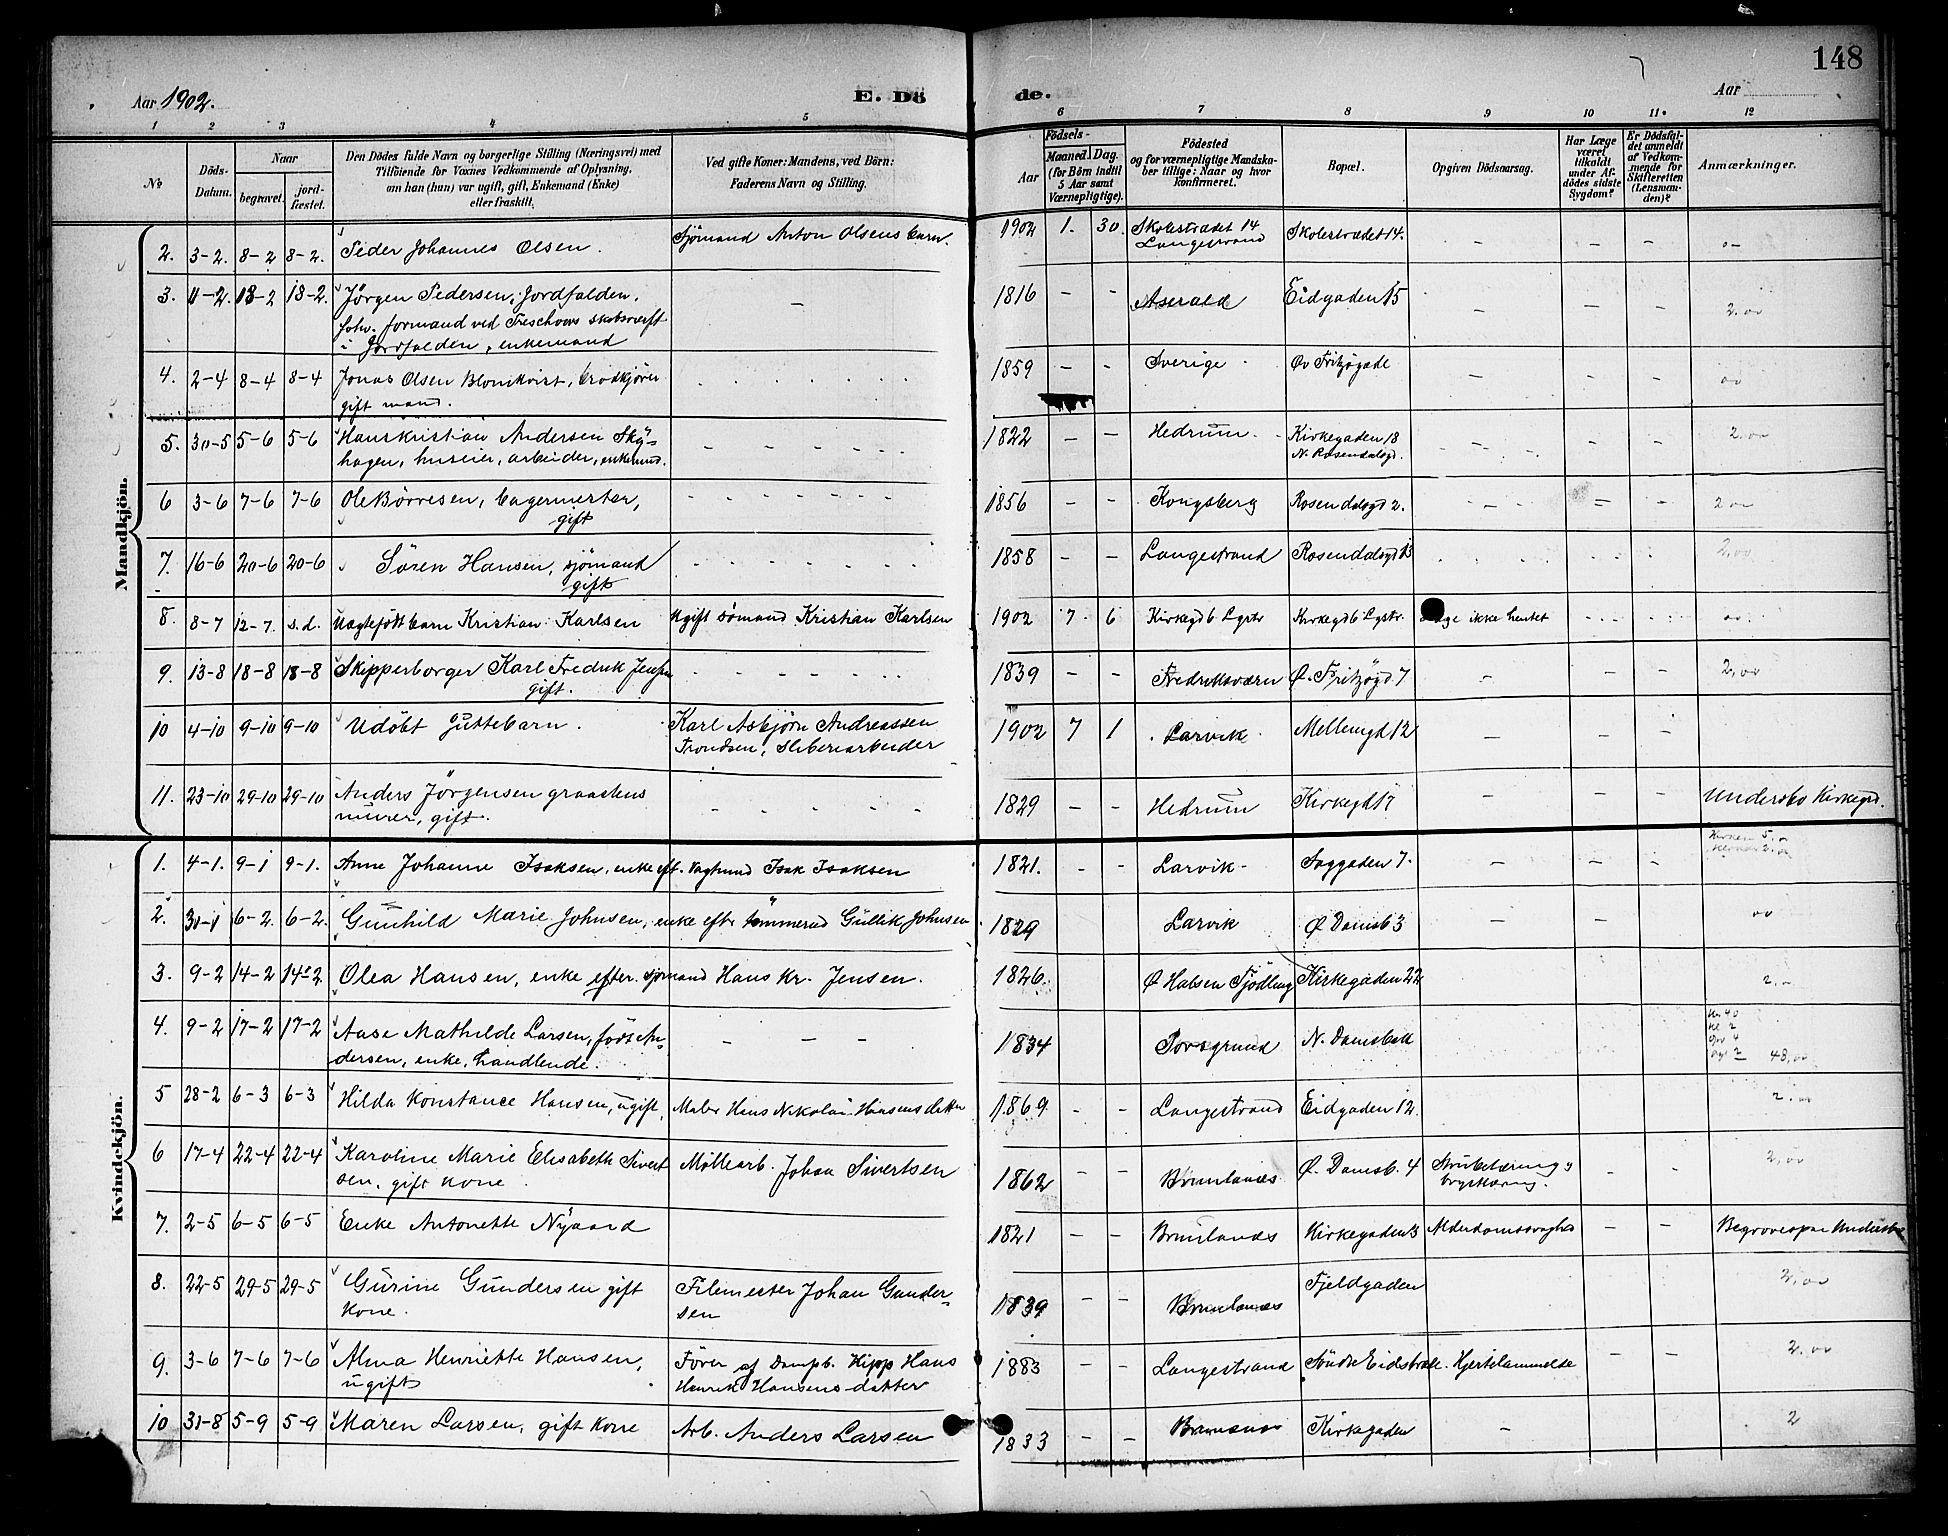 148
Aar 1902.
E. Dö
de.
Aar
1 2 3 4 5 6 7 8 9 10 11. 12
No
Döds-Datum.
Naar
begravet.
jord-fæstet.
Den Dödes fulde Navn og borgerlige Stilling (Næringsvei) med
Tilföiende for Voxnes Vedkommende af Oplysning,
om han (hun) var ugift, gift, Enkemand (Enke)
eller fraskilt.
Ved gifte Koner: Mandens, ved Börn:
Faderens Navn og Stilling.
Födsels-
Aar
Maaned. Dag.
(for Börn indtil
5 Aar samt
Værnepligtige).
Födested
og for værnepligtige Mandska-
ber tillige: Naar og hvor
konfirmeret.
Bopæl.
Opgiven Dödsaarsag.
Har Læge
været
tilkaldt
under Af-
dödes sidste
Sygdom?
Er Dödsfal-
det anmeldt
af Vedkom-
mende for
Skifteretten
(Lensman-
den)?
Anmærkninger.
Mandkjön.
2. 3-2. 8-2 8-2. Peder Johannes Olsen. Sjömand Anton Olsens barn. 1902 1. 30. Skolestrædet 14 Langestrand Skolestrædet 14. - - -
3. 11-2. 18-2 18-2. Jörgen Pedersen, Jordfalden, - 1816 - - Eidgaden 15 - - - 2.00
forv. formand ved Treschows
i Jordfalden, enkemand
4. 2-4 8-4 8-4 Jonas Olsen Blomkvist, brodkjörer 1859 - - Sverige Öv Fritzögade - - -
gift mand.
5. 30-5 5-6 5-6 Hans Kristian Andersen Sky- 1822 - - Hedrum. Kirkegaden 18 - - - 2.00
hagen, huseier, arbeider, enkemand. N. Rosendalsgd.
6 3-6 7-6 7-6 Ole Börresen, bagermester, 1856 - - Kongsberg Rosendalsgd 2. - - - 2 00
gift
7. 16-6 20-6 20-6 Sören Hansen, sjömand 1858 - - Langestrand Rosendalsgd 13 2,00
gift
8. 8-7 12-7. s.d. Uægtefödt barn Kristian Karlsen Ugift sömand Kristian Karlsen 1902 7 6 Kirkegd 6 Lgstr Kirkegd 6 Lgstr. ikke hentet
9. 13-8 18-8 18-8 Skipperborger Karl Fredrik Jensen 1839 - - Fredriksværn Ö. Fritzögd 7 - - - 2,00
gift.
10 4-10 9-10 9-10 Udöbt Guttebarn. Karl Asbjörn Andreassen 1902 7 1 Larvik Mellemgd 12 - - -
Trondsen, Sliberiarbeider
11. 23-10 29-10 29-10 Anders Jörgensen graastens 1829 - - Hedrum Kirkegd 17 - - - Undersbo Kirkegrd.
murer, gift.
Kvindekjön.
1. 4-1. 9-1 9-1. Anne Johanne Isaksen, enke eft. Vagtmand Isak Isaksen 1821. - - Larvik Saggaden 7. - - -
2. 30-1 6-2. 6-2. Gunhild Marie Johnsen, enke efter tömmermd Gullik Johnsen 1829 Larvik Ö Damsb 3 - -
3. 9-2 14-2 14-2 Olea Hansen, enke efter sjömand Hans Kr. Jensen. 1826. Ö Halsen Tjödling Kirkegaden 22 2.
4. 9-2 17-2 17-2 Aase Mathilde Larsen, född An- - - - 1834 Porsgrund N. Damsbak 48,00
dersen, enke, handlende.
5 28-2 6-3 6-3 Hilda Konstance Hansen, ugift, Maler Hans Nikolai Hansens datter 1869 - - Langestrand Eidgaden 12. 2.00
6 17-4 22-4 22-4 Karoline Marie Elisabeth Sivert Möllearb. Johan Sivertsen 1862 - - Brunlanæs Ö. Damsb. 4 Strubetæring & - - 2,00
sen, gift kone brysttæring.
7. 2-5 6-5 6-5 Enke Antonette Nygaard 1821 - - Brunlanæs Kirkegaden 3 Alderdomssvaghed - - Begravespaa Undersbo
8. 22-5 29-5 29-5 Gurine Gundersen gift Filemester Johan Gunder- 1839 - - Brunlanæs Fjeldgaden 2,00
kone. sen
9. 3-6 7-6 7-6 Alma Henriette Hansen, Förer af Dampb. Kipp Hans 1883 - - Langestrand Söndre Eidstræde. Hjertelammelse - - 2.00
ugift Henrik Hansens datter
10 31-8 5-9 5-9 Maren Larsen, gift kone Arb. Anders Larsen 1833 - - Kirkegaden - 2